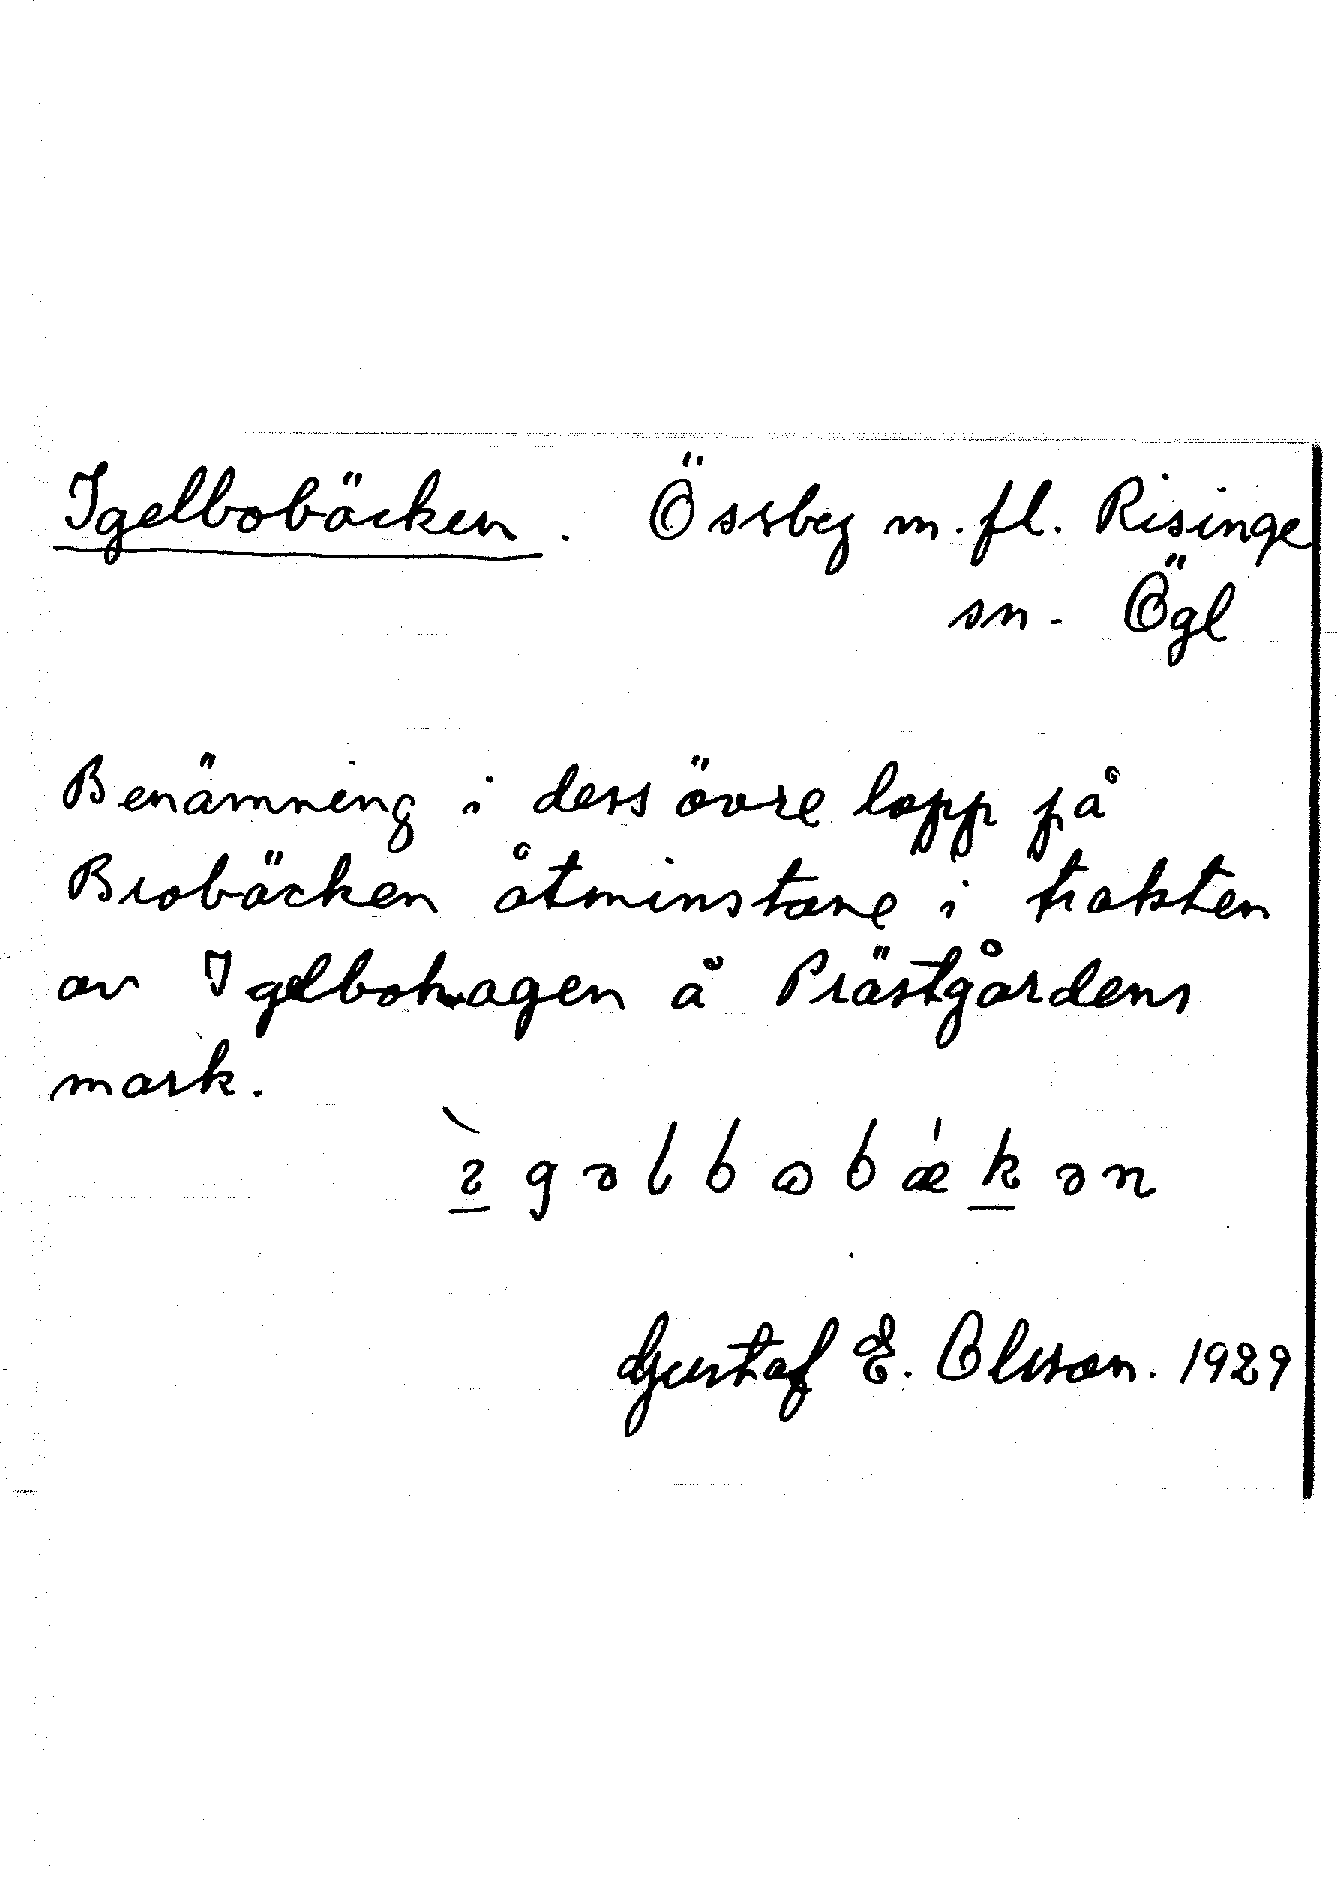 Igelbobäcken. Össby m.fl. Risinge
sn. Ögl
Benämning i dess övre lopp på
Brobäcken åtminstone i trakten
av Igelbohagen å Prästgårdens
mark.
Gustaf E. Olsson. 1929